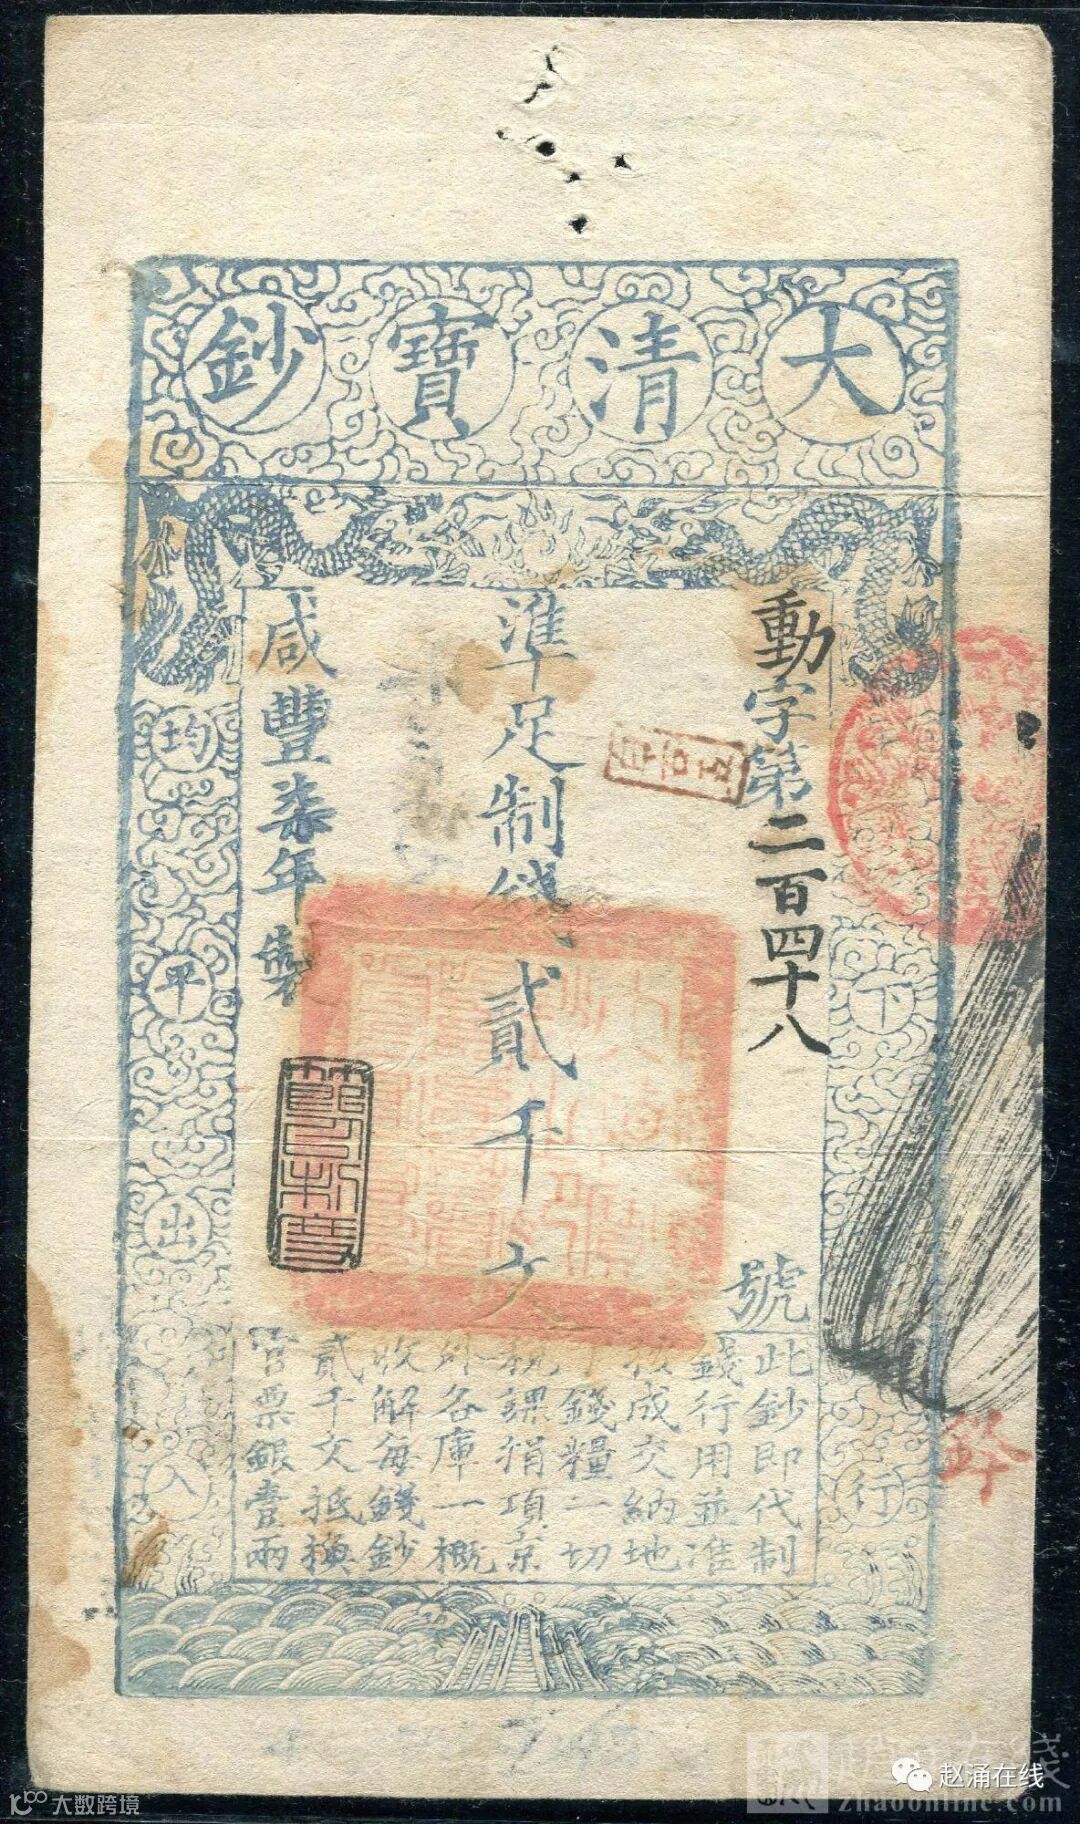 大清寶鈔
動字第二百四十八號
準足制錢貳千文
咸豐柒年製
天下通行
均平出入
此鈔即代制
錢行用並准
按成交納地
丁錢糧一切
稅課捐項京
外各庫一概
收解每錢鈔
貳千文抵換
官票銀壹兩
节以制度
大数跨境
赵涌在线
zhaoonline.com